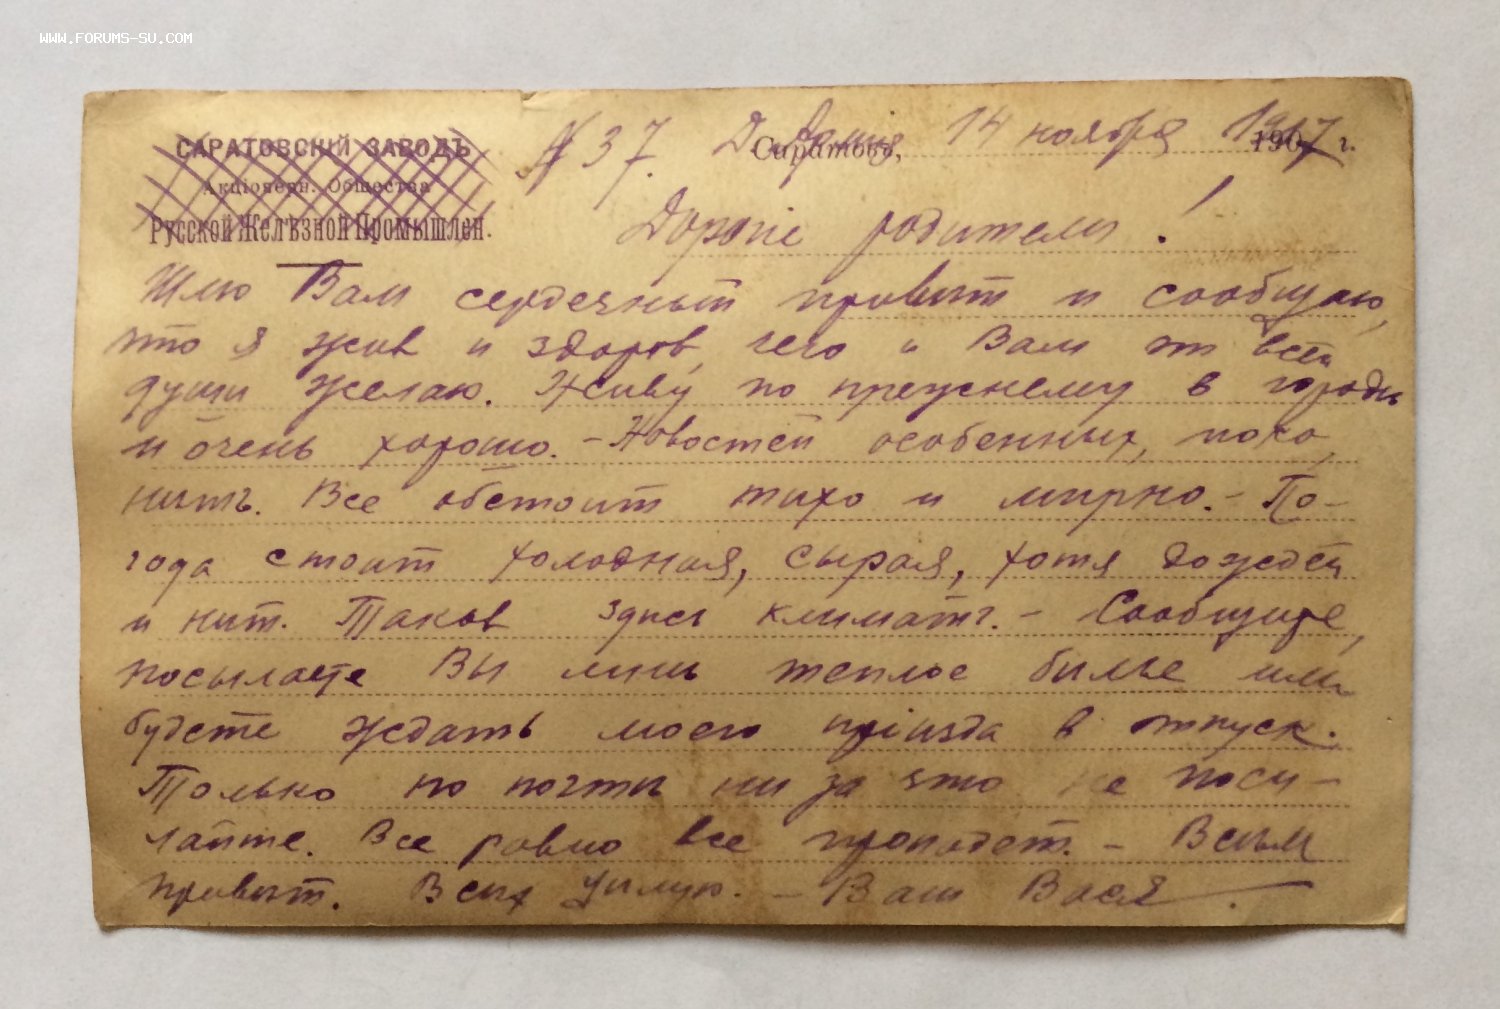 WWW.FORUMS-SU.COM
САРАТОВСКІЙ ЗАВОДЪ
Акціонерн. Общества
Русской Желѣзной Промышлен.
№ 37. Саратовъ, 14 ноября 1917 г.
Дорогіе родители!
Шлю Вам сердечный привѣт и сообщаю,
что я жив и здоров, чего и Вам от всей
души желаю. Живу по прежнему в городѣ
и очень хорошо. - Новостей особенных, пока,
нѣтъ. Все обстоит тихо и мирно. - По-
года стоит холодная, сырая, хотя дождей
и нѣт. Таков здѣсь климатъ. - Сообщите,
посылаете Вы мнѣ теплое бѣлье или
будете ждать моего пріѣзда в отпуск.
Только по почтѣ ни за что не посы-
лайте. Все равно все пропадет. - Всѣм
привѣт. Всѣх цѣлую. - Ваш Вася.